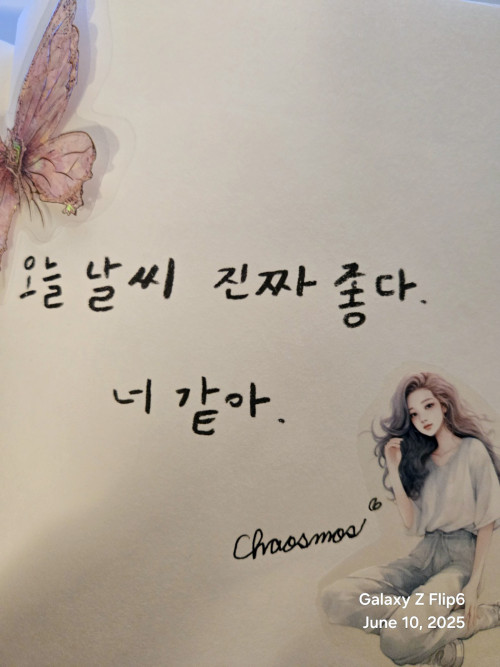 오늘 날씨 진짜 좋다.
너 같아.
Chaosmos
Galaxy Z Flip6
June 10, 2025